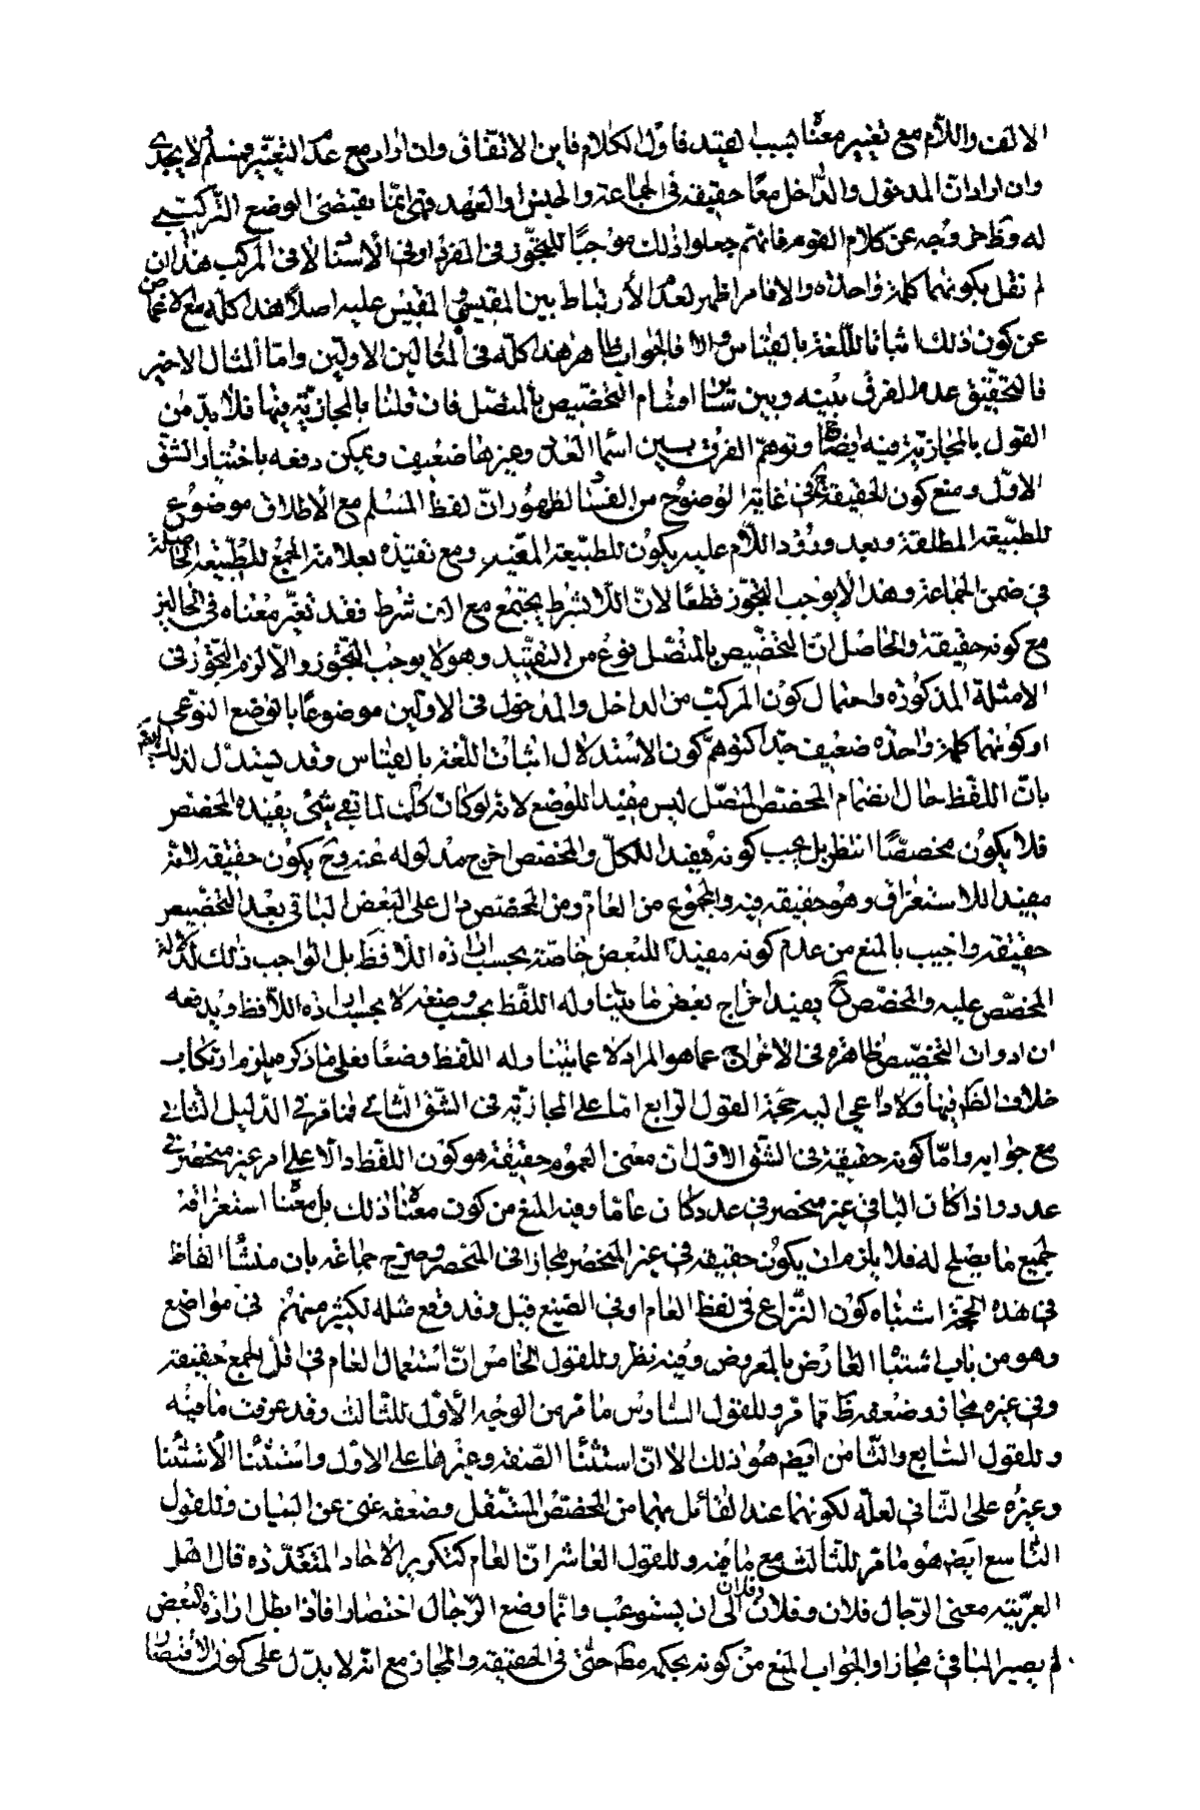 الالف واللام مع تغيير معناه بسبب القيد فاول الكلام فاين الاتفاق وان اراد مع عدم التغيير فمسلم ولا يجدى
وان اراد ان المدخول والداخل معا حقيقة فى الجماعة والجنس او العهد فهى انما يقتضى الوضع التركيبى
له وظ خروجه عن كلام القوم فانهم جعلوا ذلك موجبا للتجوز فى المفرد او فى الاستثنا لا فى المركب هذا ان
لم نقل بكونهما كلمة واحدة والا فالامر اظهر لعدم الارتباط بين المقيس والمقيس عليه اصلا هذا كله مع الاغماض
عن كون ذلك اثباتا للغة بالقياس والا فالجواب ظاهر هذا كله فى المثالين الاولين واما المثال الاخير
فالتحقيق عدم الفرق بينه وبين ساير اقسام التخصيص بالمتصل فان قلنا بالمجازية فيها فلابد من
القول بالمجازية فيه ايضا وتوهم الفرق بين اسماء العدد وغيرها ضعيف ويمكن دفعه باختيار الشق
الاول ومنع كون الحقيقة ح فى غاية الوضوح من الفساد لظهور ان لفظ المسلم مع الاطلاق موضوع
للطبيعة المطلقة وبعد ورود اللام عليه يكون للطبيعة المقيدة ومع تقييده بعلامة الجمع للطبيعة الحاصلة
فى ضمن الجماعة وهذا لا يوجب التجوز قطعا لان اللا بشرط يجتمع مع الف شرط فقد تغير معناه فى الحالين
مع كونه حقيقة والحاصل ان التخصيص بالمتصل نوع من التقييد وهو لا يوجب التجوز والا لزم التجوز فى
الامثلة المذكورة واحتمال كون المركب من الداخل والمدخول فى الاولين موضوعا بالوضع النوعى
او كونهما كلمة واحدة ضعيف جدا كتوهم كون الاستدلال اثبات اللغة بالقياس وقد يستدل لذلك ايضا
بان اللفظ حال انضمام المخصص المتصل ليس مفيدا للوضع لانه لو كان كذلك لما بقى شئ يفيده المخصص
فلا يكون مخصصا انتظر بل يجب كونه مفيدا للكل والمخصص اخرج مدلوله عنه وح يكون حقيقة لانه
مفيد للاستغراق وهو حقيقة فيه والمجموع من العام ومن المخصص دال على البعض الباقى بعد التخصيص
حقيقة واجيب بالمنع من عدم كونه مفيدا للبعض خاصة بحسب ارادة اللافظ بل الواجب ذلك لدلالة
المخصص عليه والمخصص ح يفيد اخراج بعض ما يتناوله اللفظ بحسب وضعه لا بحسب ارادة اللافظ ويدفعه
ان ادوات التخصيص ظاهرة فى الاخراج عما هو المراد لا عما يتناوله اللفظ وضعا فعلى ما ذكر يلزم ارتكاب
خلاف الظ فيها ولا داعى اليه حجة القول الرابع اما على المجازية فى الشق الثانى فما مر فى الدليل الثانى
مع جوابه واما كونه حقيقة فى الشق الاول ان معنى العموم حقيقة هو كون اللفظ دالا على امر غير منحصر فى
عدد واذا كان الباقى غير منحصر فى عدد كان عاما وفيه المنع من كون معناه ذلك بل معناه استغراقه
لجميع ما يصلح له فلا يلزم ان يكون حقيقة فى غير المنحصر مجازا فى المنحصر وصرح جماعة بان منشأ الغلط
فى هذه الحجة اشتباه كون النزاع فى لفظ العام او فى الصيغ قيل وقد وقع مثله لكثير منهم فى مواضع
وهو من باب اشتباه العارض بالمعروض وفيه نظر وللقول الخامس ان استعمال العام فى اقل الجمع حقيقة
وفى غيره مجاز وضعفه ظ مما مر وللقول السادس ما مر من الوجه الاول للثالث وقد عرفت ما فيه
وللقول السابع والثامن ايض هو ذلك الا ان استثناء الصفة وغيرها على الاول واستثناء الاستثناء
وغيره على الثانى لعله لكونهما عند القائل بهما من المخصص المستقل وضعفه غنى عن البيان وللقول
التاسع ايض هو ما مر للثالث مع ما فيه وللقول العاشر ان العام كتكرير الاحاد المتعددة قال اهل
العربية معنى الرجال فلان وفلان وفلان الى ان يستوعب وانما وضع الرجال اختصارا فاذا بطل ارادة البعض
لم يصير الباقى مجازا والجواب المنع من كونه بحكمه مط حتى فى الحقيقة والمجاز مع انه لا يدل على كون الاقتصار